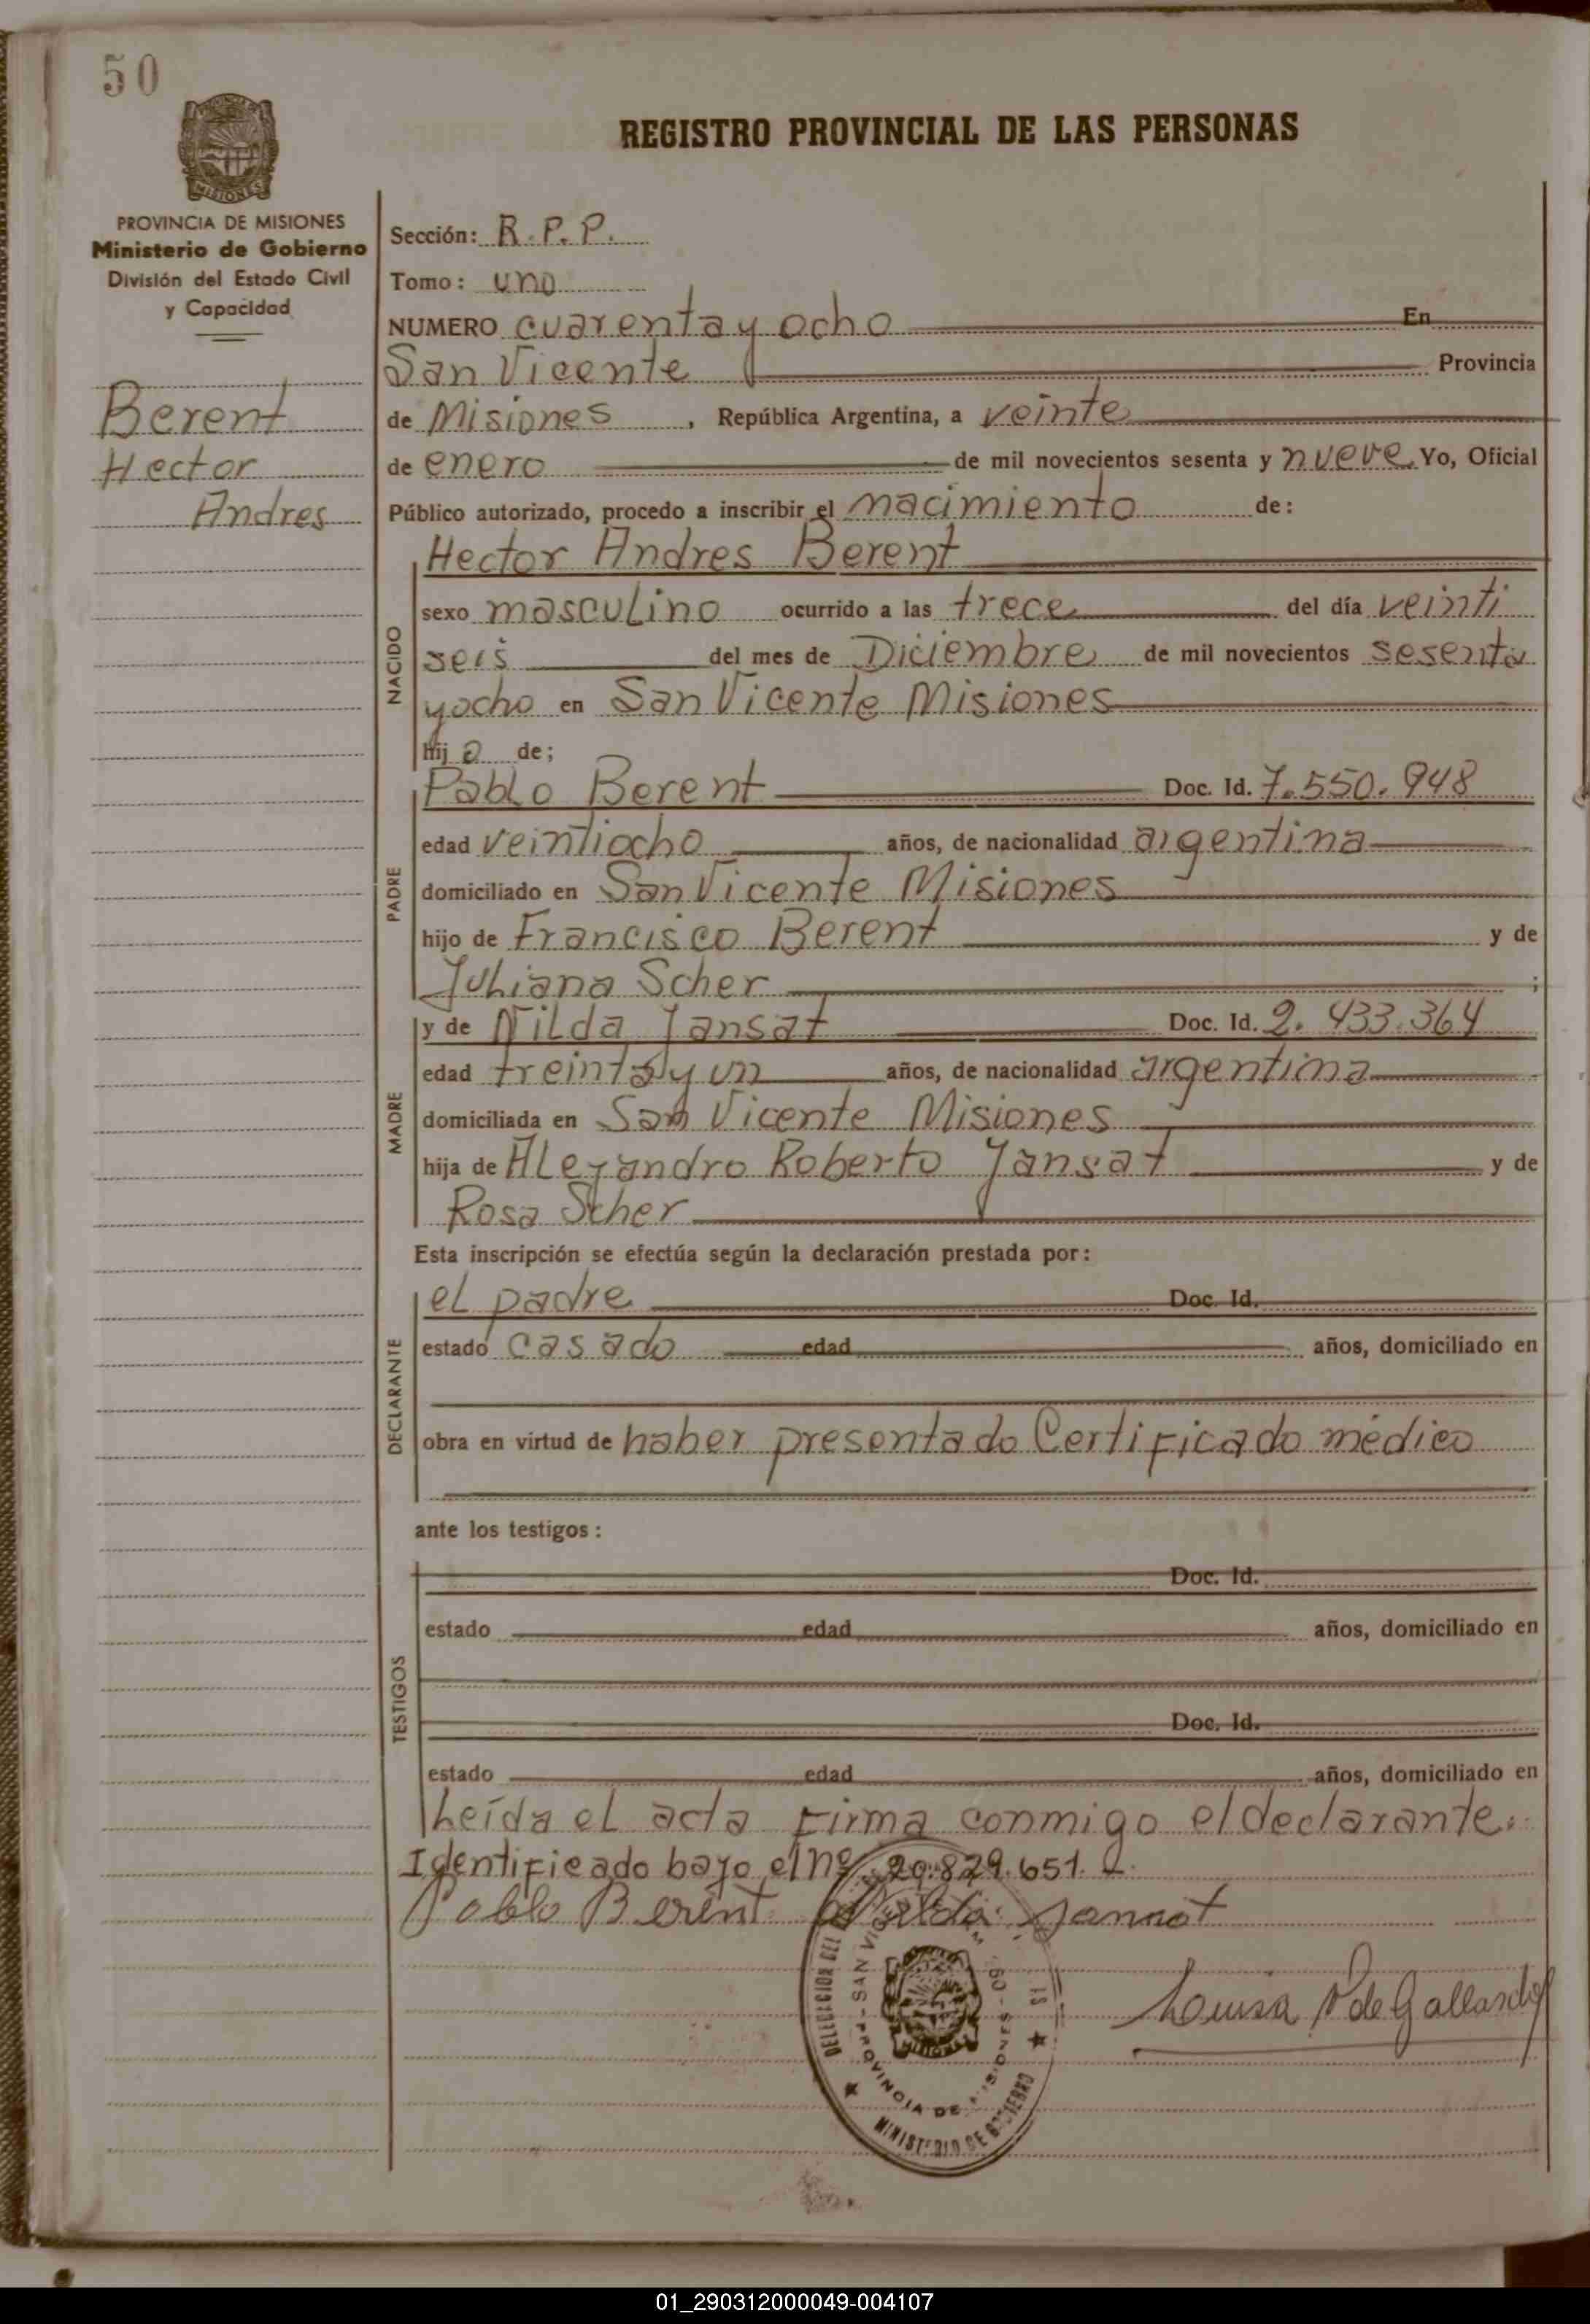 50
MISIONES
PROVINCIA DE MISIONES
Ministerio de Gobierno
División del Estado Civil
y Capacidad
Berent
Hector
Andres
REGISTRO PROVINCIAL DE LAS PERSONAS
Sección: R.P.P.
Tomo: uno
NUMERO cuarenta y ocho En
San Vicente Provincia
de Misiones, República Argentina, a veinte
de enero de mil novecientos sesenta y nueve. Yo, Oficial
Público autorizado, procedo a inscribir el nacimiento de:
NACIDO
Hector Andres Berent
sexo masculino ocurrido a las trece del día veinti
seis del mes de Diciembre de mil novecientos sesenta
y ocho en San Vicente Misiones
hijo de;
PADRE
Pablo Berent Doc. Id. 7.550.948
edad veintiocho años, de nacionalidad argentina
domiciliado en San Vicente Misiones
hijo de Francisco Berent y de
Juliana Scher ;
MADRE
y de Nilda Jansat Doc. Id. 2.433.364
edad treinta y un años, de nacionalidad argentina
domiciliada en San Vicente Misiones
hija de Aleyandro Roberto Jansat y de
Rosa Scher
Esta inscripción se efectúa según la declaración prestada por:
DECLARANTE
el padre Doc. Id.
estado casado edad años, domiciliado en
obra en virtud de haber presentado Certificado médico
ante los testigos:
TESTIGOS
Doc. Id.
estado edad años, domiciliado en
Doc. Id.
estado edad años, domiciliado en
Leída el acta firma conmigo el declarante.
Identificado bajo el nº 20.829.651.
Pablo Berent Nilda Jannot
DELEGACION DEL
SAN VICENTE
PROVINCIA DE MISIONES
MINISTERIO DE GOBIERNO
Luisa P de Gallardo
01_290312000049-004107